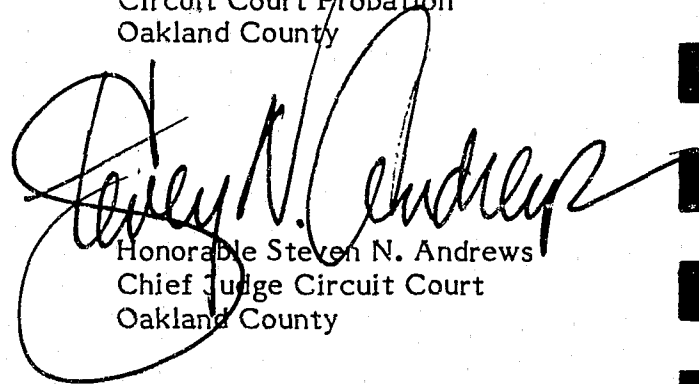 Circuit Court Probation
Oakland County
Steven N. Andrews
Honorable Steven N. Andrews
Chief Judge Circuit Court
Oakland County